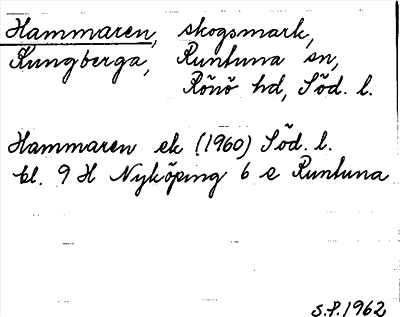 Hammaren, skogsmark,
Kungberga, Runtuna sn,
Rönö hd, Söd. l.
Hammaren ek (1960) Söd. l.
bl. 9 H Nyköping 6 e Runtuna
S.P. 1962